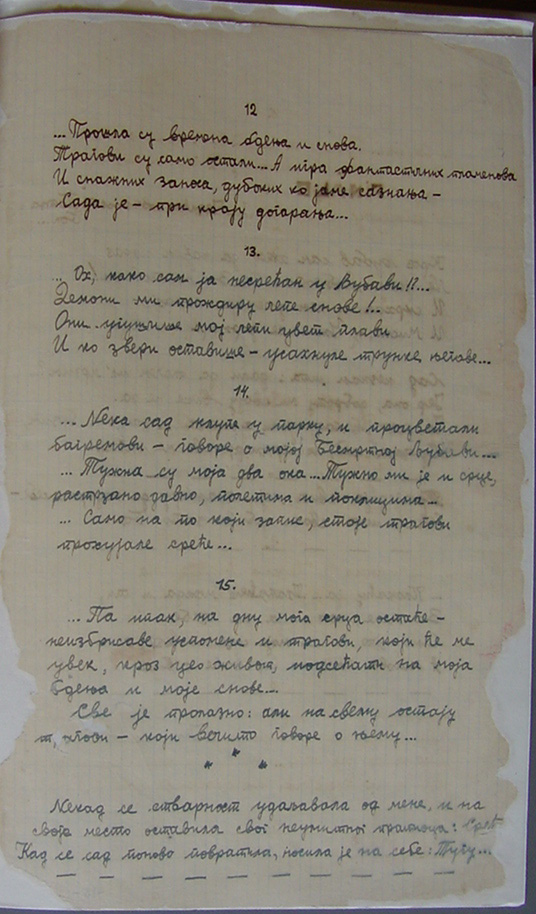 12
...Прошла су времена бдења и снова.
Трагови су само остали... А игра фантастичних пламенова
И снажних заноса, дубоких ко јаме сазнања –
Сада је – при крају догарања...
13.
... Ох, како сам ја несрећан у Љубави!!...
Демони ми прождиру лепе снове!...
Они угушише мој лепи цвет плави
И ко звери оставише – усахнуле трунке његове...
14.
... Нека сад клупе у парку, и процветали
багремови – говоре о мојој Бесмртној Љубави...
... Тужна су моја два ока... Тужно ми је и срце,
растрзано давно, полетима и поклицима...
... Само на по који запис, стоје трагови
прохујале среће...
15.
... Па ипак, на дну мога срца остаће –
неизбрисаве успомене и трагови, који ће ме
увек, кроз цео живот, подсећати на моја
бдења и моје снове...
Све је пролазно: али на свему остају
трагови – који вечито говоре о њему...
* * *
Некад се стварност удаљавала од мене, и на
своје место оставила свог неумитног пратиоца:
Кад се сад поново повратила, носила је на себе: Тугу...